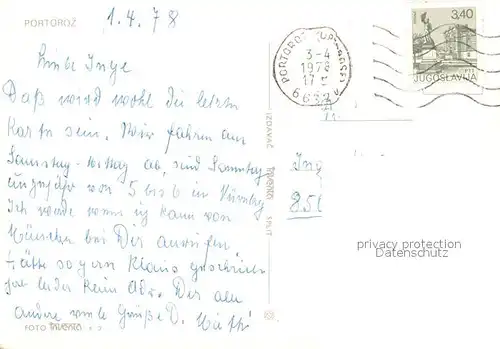 PORTOROŽ
1.4.78
Liebe Inge
Daß wird wohl die letzte
Karte sein. Wir fahren am
Samstag-Mittag ab, sind Sonntag
ungefähr von 5 bis 6 in Nürnberg
Ich werde wenn ich kann von
München bei Dir anrufen
Hätte so gern Klaus geschrieben
hab leider keine Adr. Der
andere viele Grüße D.
FOTO
IZDAVAČ
SPLIT
PORTOROŽ
3-4
1978
17
3,40
JUGOSLAVIJA
Ing
85
privacy protection
Datenschutz